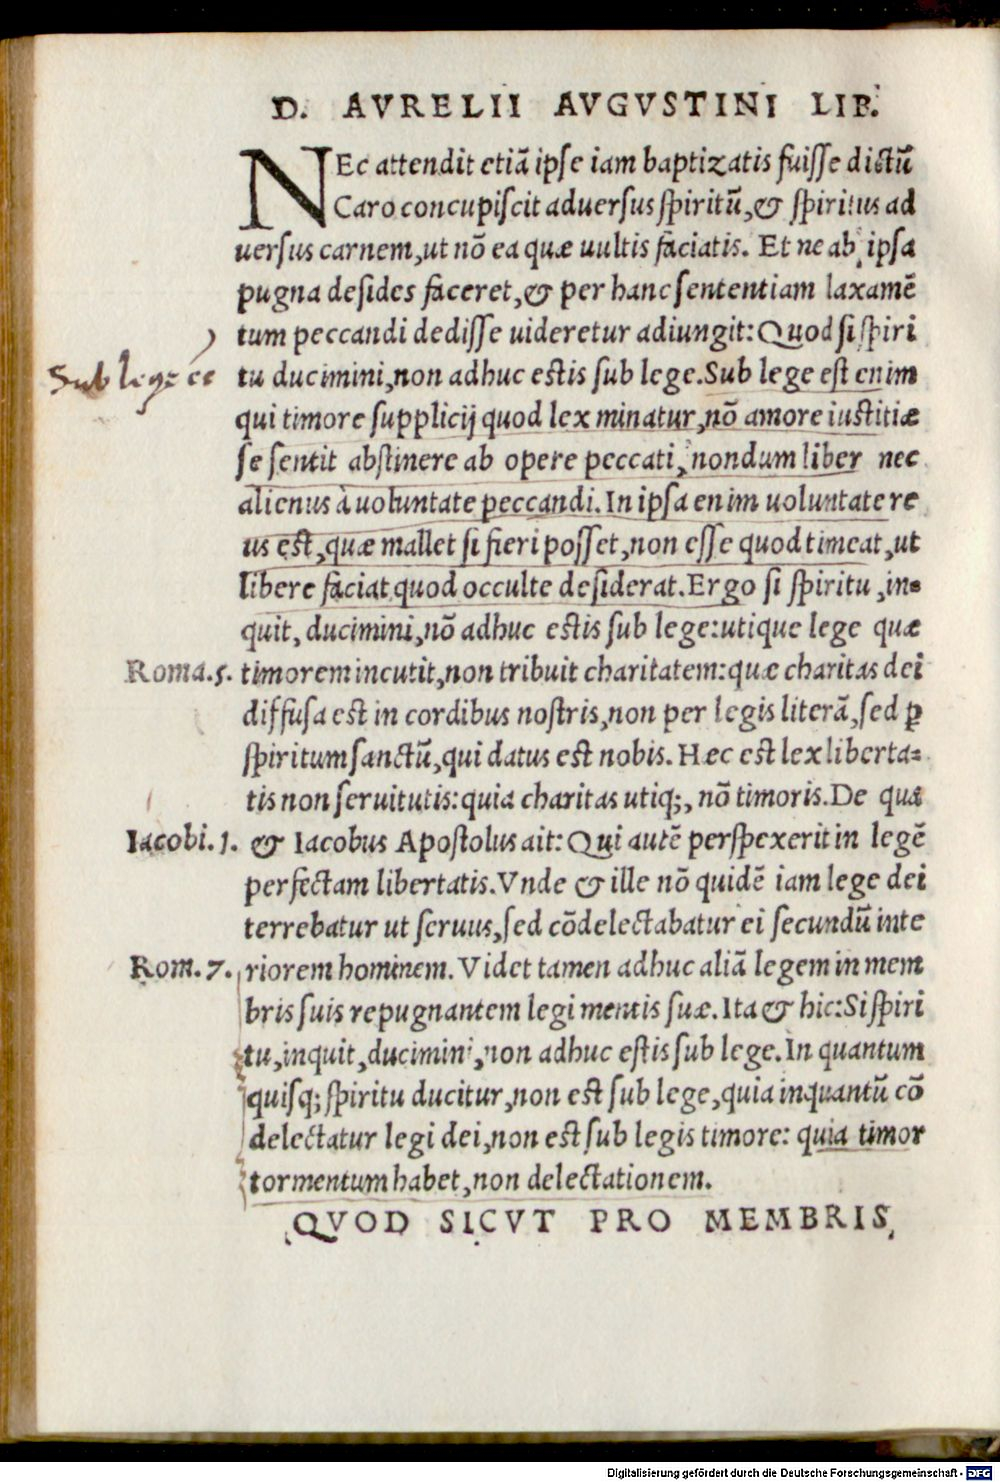 D. AVRELII AVGVSTINI LIB.
NEc attendit etiã ipse iam baptizatis fuisse dictũ
Caro concupiscit adversus spiritũ, & spiritus ad
uersus carnem, ut nõ ea quæ uultis faciatis. Et ne ab ipsa
pugna desides faceret, & per hanc sententiam laxamẽ
tum peccandi dedisse uideretur adiungit: Quod si spiri
Sub lege ee
tu ducimini, non adhuc estis sub lege. Sub lege est enim
qui timore supplicij quod lex minatur, nõ amore iustitiæ
se sentit abstinere ab opere peccati, nondum liber nec
alienus à uoluntate peccandi. In ipsa enim uoluntate re
us est, quæ mallet si fieri posset, non esse quod timeat, ut
libere faciat quod occulte desiderat. Ergo si spiritu, in-
quit, ducimini, nõ adhuc estis sub lege: utique lege quæ
Roma. 5. timorem incutit, non tribuit charitatem: quæ charitas dei
diffusa est in cordibus nostris, non per legis literã, sed ꝑ
spiritum sanctũ, qui datus est nobis. Hæc est lex liberta-
tis non seruitutis: quia charitas utiq;, nõ timoris. De qua
Iacobi. 1. & Iacobus Apostolus ait: Qui autẽ perspexerit in legẽ
perfectam libertatis. Vnde & ille nõ quidẽ iam lege dei
terrebatur ut seruus, sed cõdelectabatur ei secundũ inte
Rom. 7. riorem hominem. Videt tamen adhuc aliã legem in mem
bris suis repugnantem legi mentis suæ. Ita & hic: Si spiri
tu, inquit, ducimini, non adhuc estis sub lege. In quantum
quisq; spiritu ducitur, non est sub lege, quia inquantũ cõ
delectatur legi dei, non est sub legis timore: quia timor
tormentum habet, non delectationem.
QVOD SICVT PRO MEMBRIS
Digitalisierung gefördert durch die Deutsche Forschungsgemeinschaft - DFG